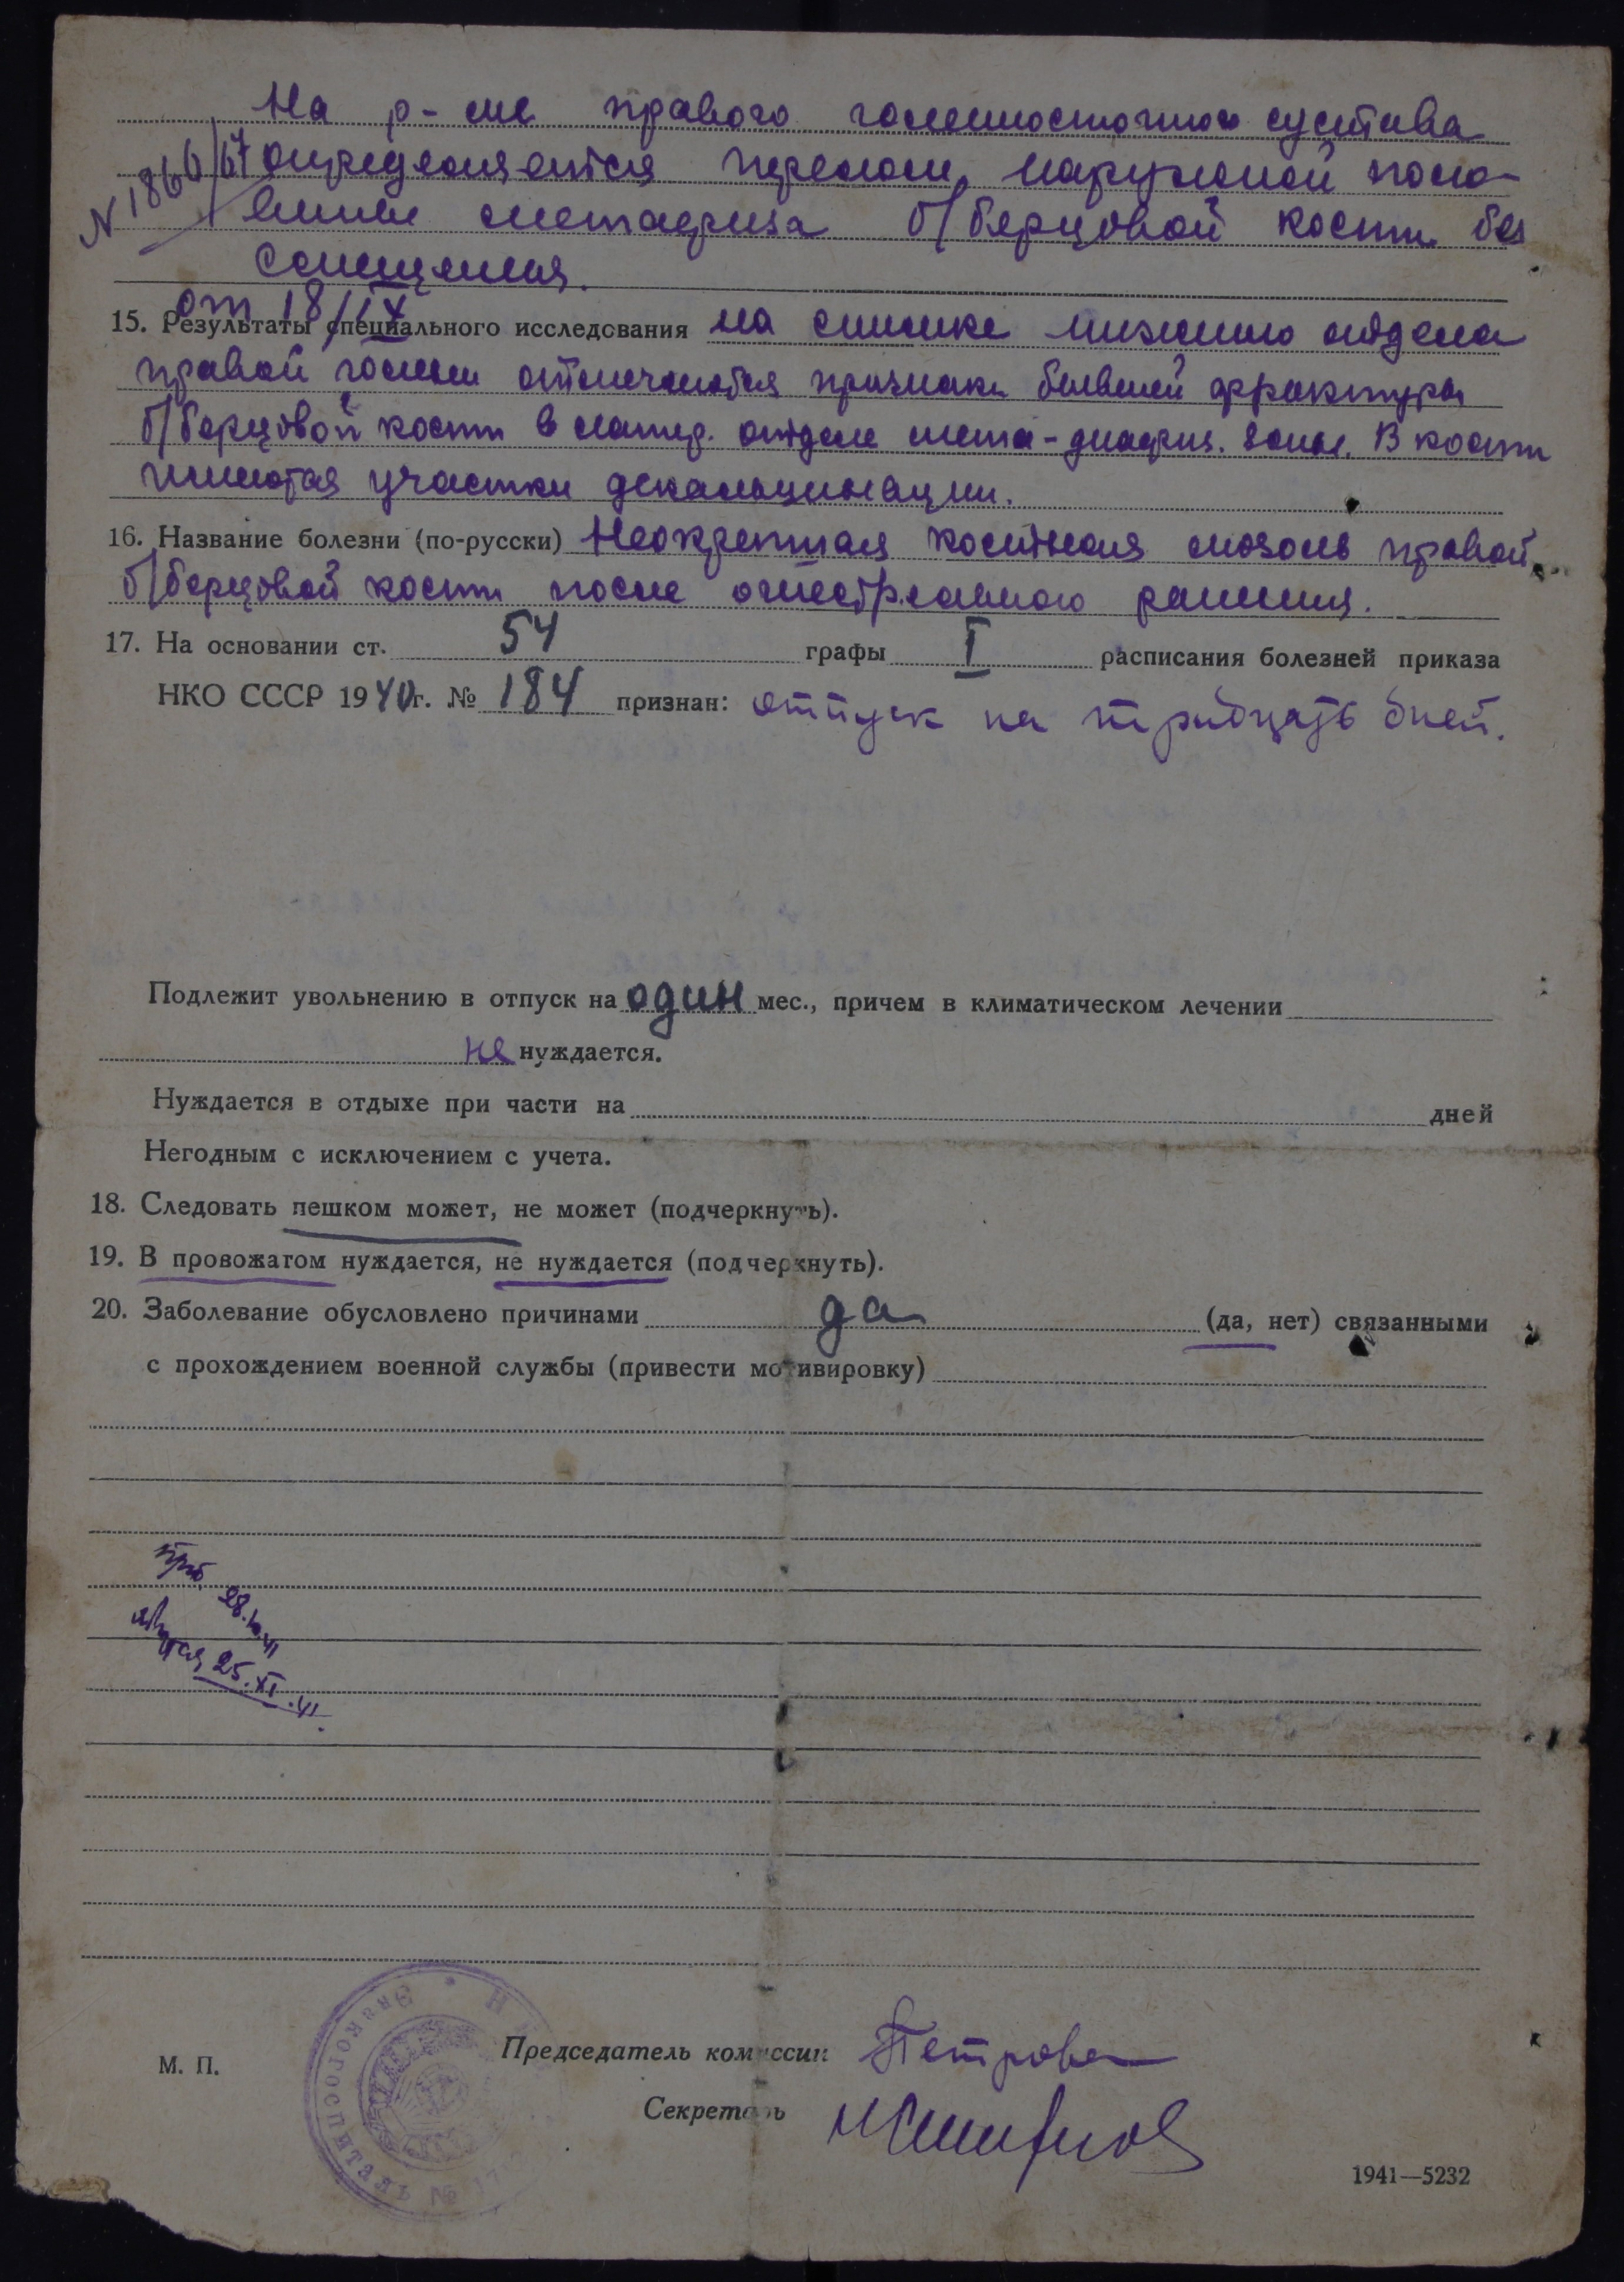 На р-ме правого голеностопного сустава
№ 1866/67 определяется перелом наружной поло-
вины метафиза б/берцовой кости без
смещения.
от 18/IX
15. Результаты специального исследования на снимке нижнего отдела
правой голени отмечаются признаки бывшей фрактуры
б/берцовой кости в латер. отделе мета-диафиз. зоны. В кости
имеются участки декальцинации.
16. Название болезни (по-русски) Неокрепшая костная мозоль правой
б/берцовой кости после огнестрельного ранения.
17. На основании ст. 54 графы I расписания болезней приказа
НКО СССР 1940г. № 184 признан: отпуск на тридцать дней.
Подлежит увольнению в отпуск на один мес., причем в климатическом лечении
не нуждается.
Нуждается в отдыхе при части на дней
Негодным с исключением с учета.
18. Следовать пешком может, не может (подчеркнуть).
19. В провожатом нуждается, не нуждается (подчеркнуть).
20. Заболевание обусловлено причинами да (да, нет) связанными
с прохождением военной службы (привести мотивировку)
28.X.41
25.XI.41
Председатель комиссии Петрова
М. П.
Секретарь
Эвакогоспиталь №
1941—5232